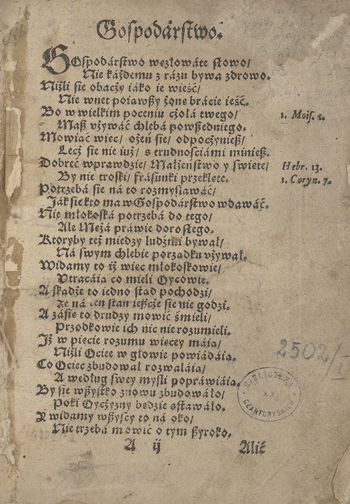 Gospodárstwo.
GOspodárstwo węzłowáte słowo/
Nie káżdemu z rázu bywa zdrowo.
Niżli sie obaczy iáko ie wieść/
Nie wnet poiąwszy żonę bracie ieść.
Bo w wielkim poceniu czołá twego/
Masz vżywáć chlebá powszedniego.
Mowiąc wiec/ ożeń sie/ odpoczynieß/
Lecz sie nic iuż/ s trudnościámi minieß.
Dobreć wprawdzie/ Małżeństwo y święte/
By nie troski/ frásunki przeklęte.
Potrzebá sie ná to rozmyśláwáć/
Ják sie kto ma w Gospodárstwo wdawáć.
Nie młokoská potrzebá do tego/
Ale Mężá práwie dorosłego.
Ktoryby też miedzy ludźmi bywał/
Ná swym chlebie porządku vżywał.
Widamy to iż wiec młokoskowie/
Vtracáią co mieli Oycowie.
A skądże to iedno stąd pochodzi/
Że ná ten stan ieszcze sie nie godzi.
A zásie to drudzy mowić śmieli/
Przodkowie ich nic nie rozumieli.
Jż w pięcie rozumu wiecey máią/
Niżli Ociec w głowie powiádáią.
Co Ociec zbudował rozwaláią/
A według swey myśli popráwiáią.
By sie wszystko znowu zbudowáło/
Poki Oyczyzny będzie sstawáło.
A widamy wszyscy to ná oko/
Nie trzebá mowić o tym szyroko.
A ij
Alić
1. Moiß.
Hebr. 13.
1. Coryn. 7.
2502/I
BIBLIOTEKA
X.X.
CZARTORYSKICH